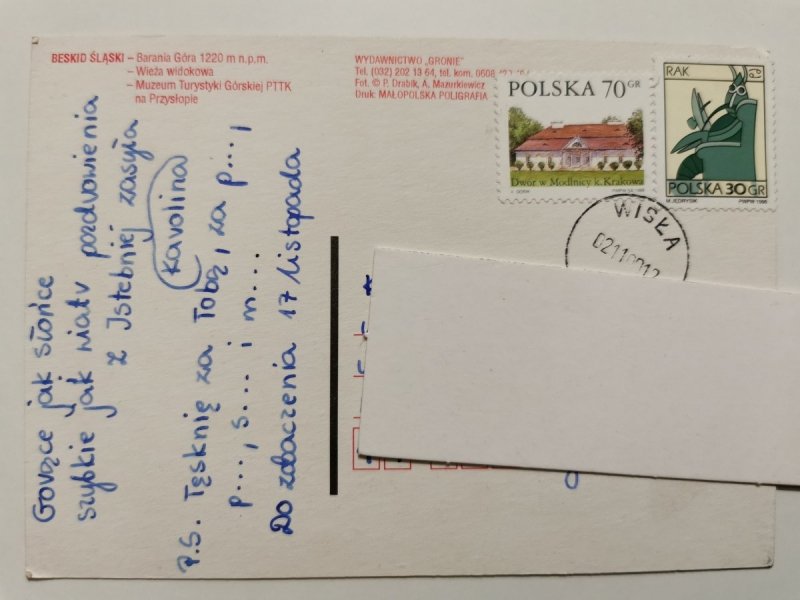 BESKID ŚLĄSKI – Barania Góra 1220 m n.p.m.
– Wieża widokowa
– Muzeum Turystyki Górskiej PTTK
na Przysłopie
WYDAWNICTWO „GRONIE”
Tel. (032) 202 13 64, tel. kom. 0608
Fot. © P. Drabik, A. Mazurkiewicz
Druk: MAŁOPOLSKA POLIGRAFIA
POLSKA 70 GR
Dwór w Modlnicy k. Krakowa
PWPW
RAK
POLSKA 30 GR
M. JEDRYSIK PWPW 1996
WISŁA
Gorące jak słońce
szybkie jak wiatr pozdrowienia
z Istebnej zasyła
Karolina
P.S. Tęsknię za Tobą, za p...,
p..., s... i m...
Do zobaczenia 17 listopada